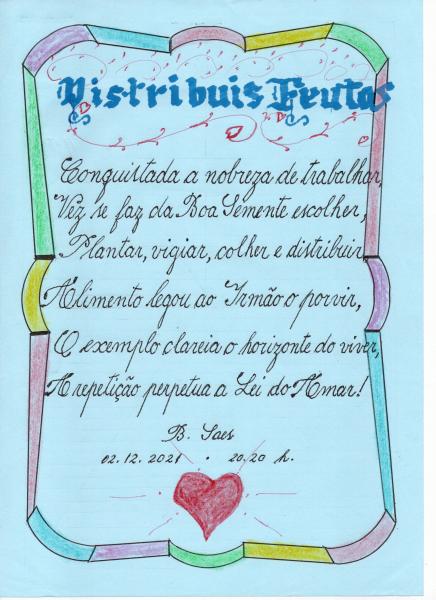 Distribuis Frutos
Conquistada a nobreza de trabalhar,
Vez se faz da Boa Semente escolher,
Plantar, vigiar, colher e distribuir,
Alimento legou ao Irmão o porvir,
O exemplo clareia o horizonte do viver,
A repetição perpetua a Lei do Amar!
B. Saes
02.12.2021 . 20.20 h.